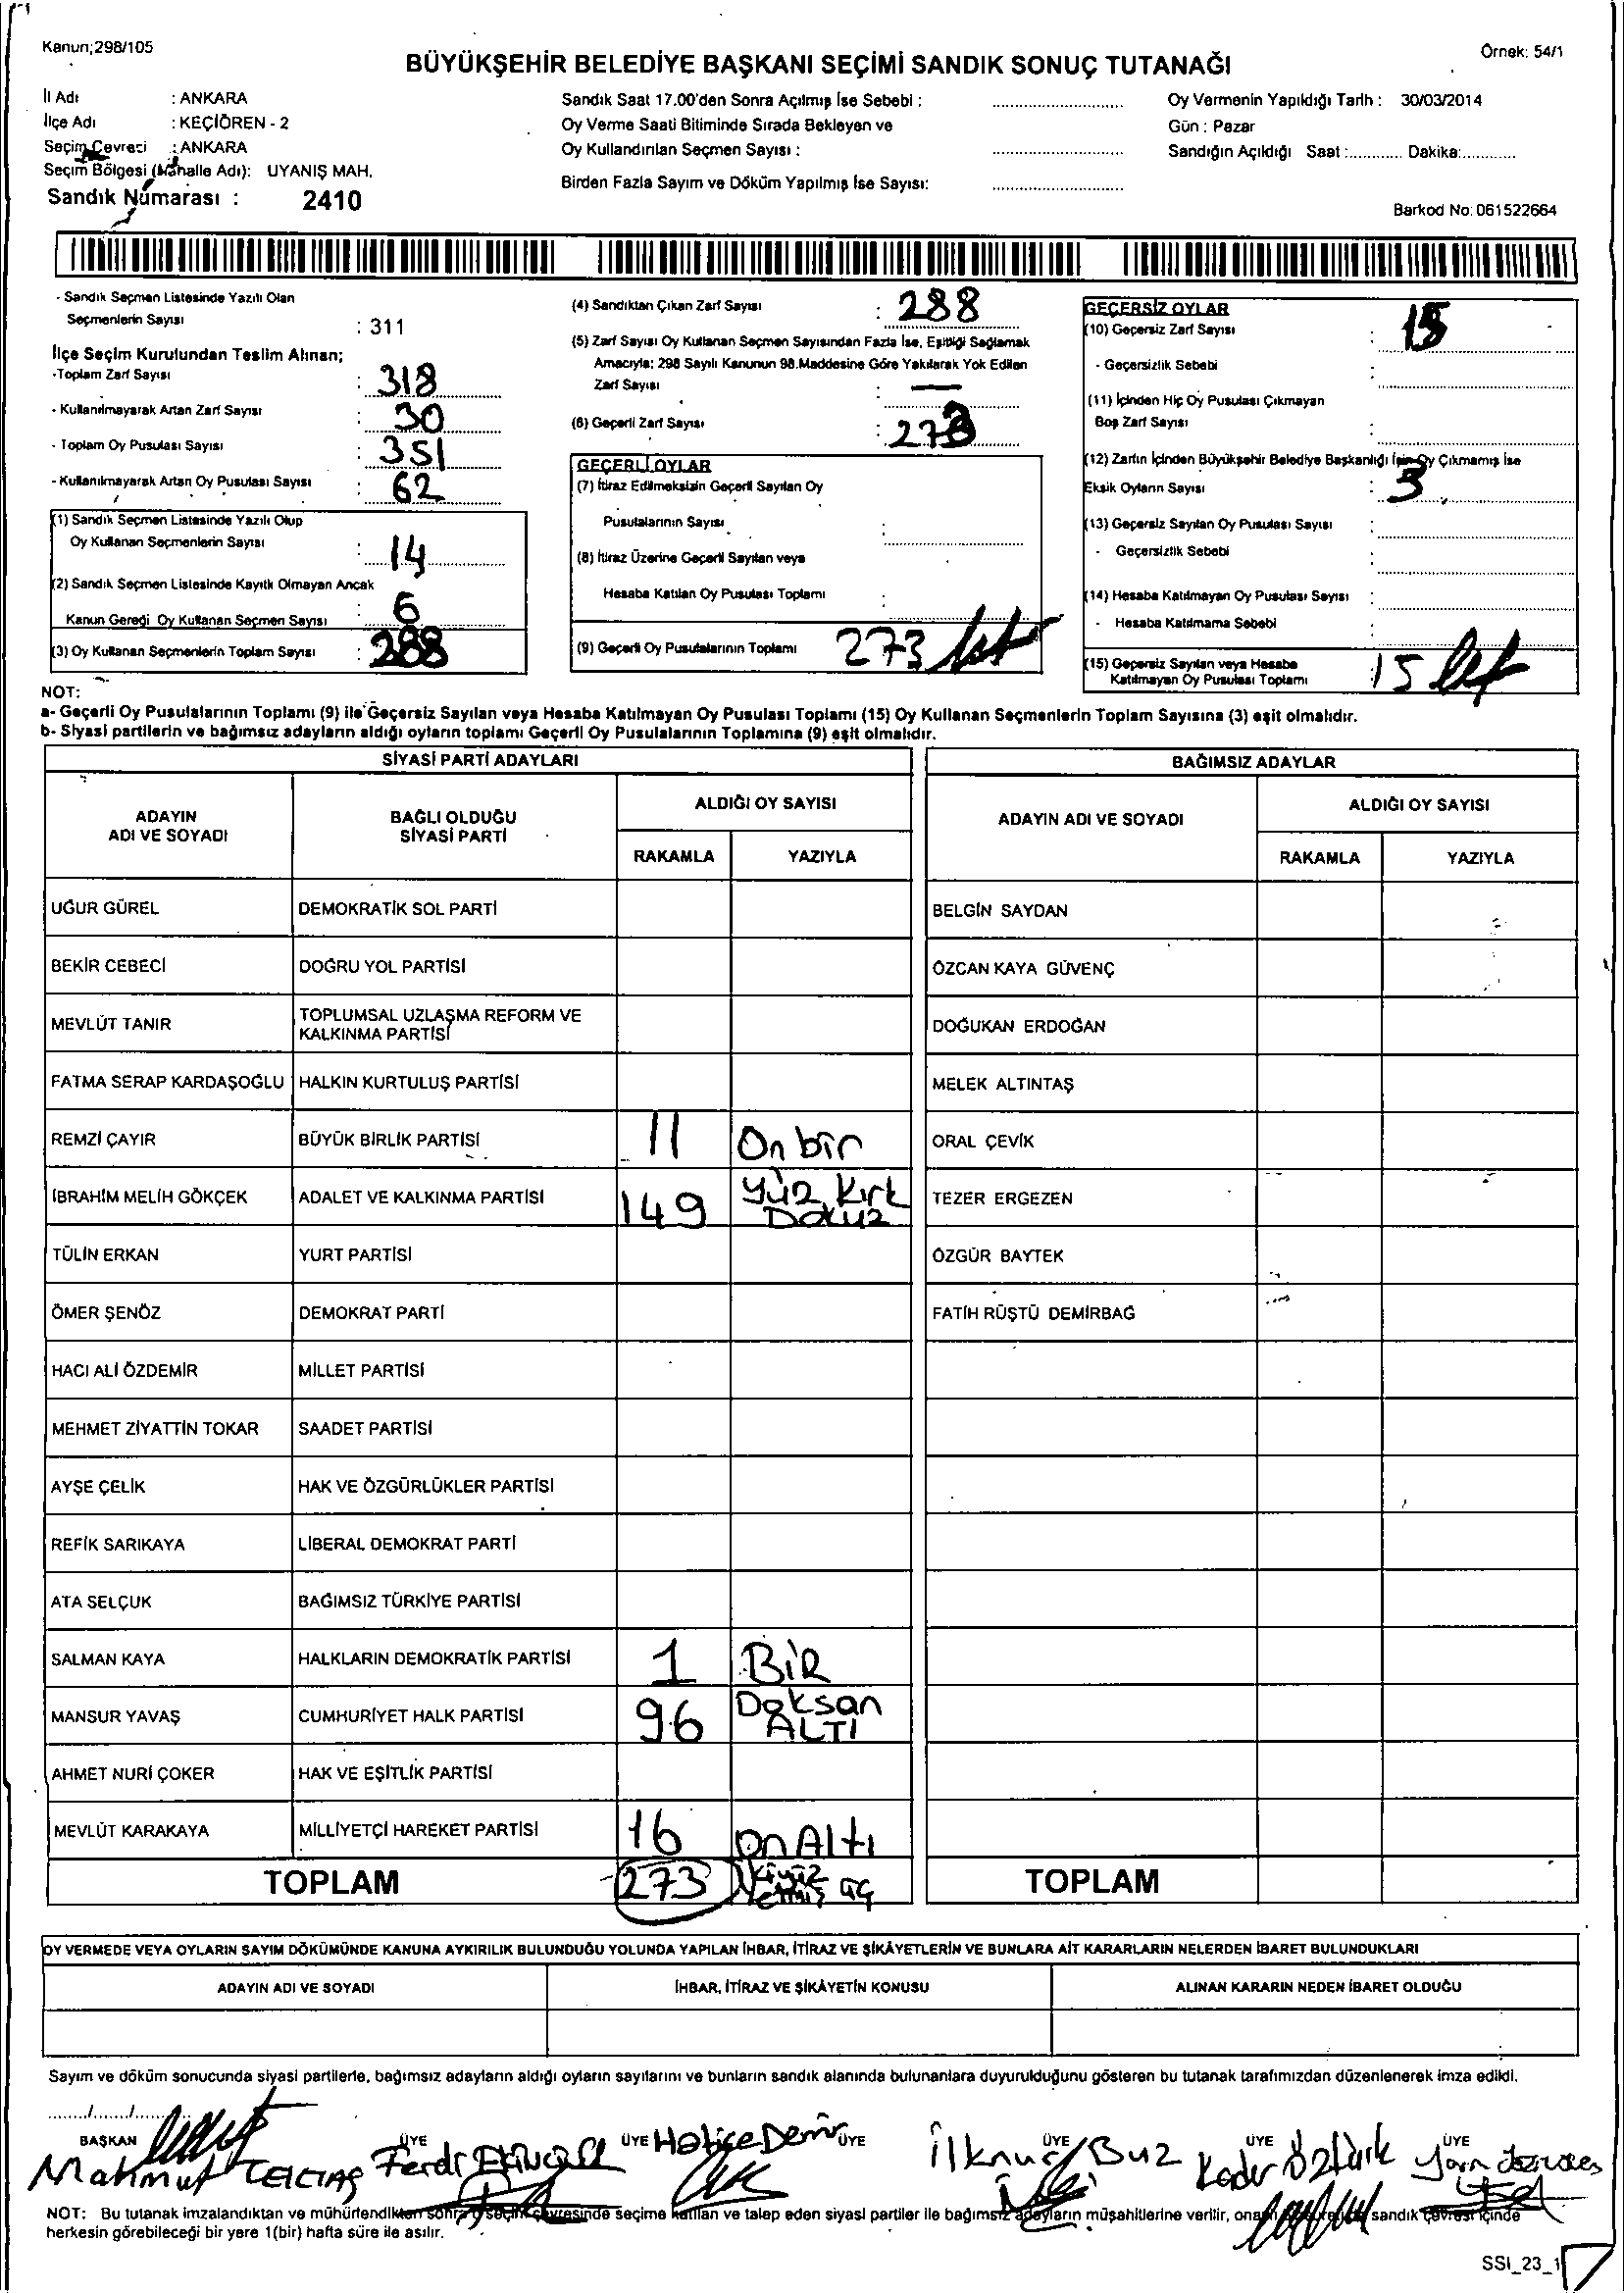 Kanun;298/105
Örnek: 54/1
BÜYÜKŞEHİR BELEDİYE BAŞKANI SEÇİMİ SANDIK SONUÇ TUTANAĞI
İl Adı : ANKARA
İlçe Adı : KEÇİÖREN - 2
Seçim Çevresi : ANKARA
Seçim Bölgesi (Mahalle Adı): UYANIŞ MAH.
Sandık Numarası : 2410
Sandık Saat 17.00'den Sonra Açılmış İse Sebebi :
Oy Verme Saati Bitiminde Sırada Bekleyen ve
Oy Kullandırılan Seçmen Sayısı :
Birden Fazla Sayım ve Döküm Yapılmış İse Sayısı:
Oy Vermenin Yapıldığı Tarih : 30/03/2014
Gün : Pazar
Sandığın Açıldığı Saat :............ Dakika:............
Barkod No: 061522664
- Sandık Seçmen Listesinde Yazılı Olan
Seçmenlerin Sayısı : 311
İlçe Seçim Kurulundan Teslim Alınan;
-Toplam Zarf Sayısı : 318
- Kullanılmayarak Artan Zarf Sayısı : 30
- Toplam Oy Pusulası Sayısı : 351
- Kullanılmayarak Artan Oy Pusulası Sayısı : 62
(1) Sandık Seçmen Listesinde Yazılı Olup
Oy Kullanan Seçmenlerin Sayısı : 14
(2) Sandık Seçmen Listesinde Kayıtlı Olmayan Ancak
Kanun Gereği Oy Kullanan Seçmen Sayısı : 6
(3) Oy Kullanan Seçmenlerin Toplam Sayısı : 288
(4) Sandıktan Çıkan Zarf Sayısı : 288
(5) Zarf Sayısı Oy Kullanan Seçmen Sayısından Fazla İse, Eşitliği Sağlamak
Amacıyla; 298 Sayılı Kanunun 98.Maddesine Göre Yakılarak Yok Edilen
Zarf Sayısı : —
(6) Geçerli Zarf Sayısı : 273
GEÇERLİ OYLAR
(7) İtiraz Edilmeksizin Geçerli Sayılan Oy
Pusulalarının Sayısı :
(8) İtiraz Üzerine Geçerli Sayılan veya
Hesaba Katılan Oy Pusulası Toplamı :
(9) Geçerli Oy Pusulalarının Toplamı 273
GEÇERSİZ OYLAR
(10) Geçersiz Zarf Sayısı : 15
- Geçersizlik Sebebi :
(11) İçinden Hiç Oy Pusulası Çıkmayan
Boş Zarf Sayısı :
(12) Zarfın İçinden Büyükşehir Belediye Başkanlığı İçin Oy Çıkmamış İse
Eksik Oyların Sayısı : 3
(13) Geçersiz Sayılan Oy Pusulası Sayısı :
- Geçersizlik Sebebi :
(14) Hesaba Katılmayan Oy Pusulası Sayısı :
- Hesaba Katılmama Sebebi :
(15) Geçersiz Sayılan veya Hesaba
Katılmayan Oy Pusulası Toplamı 15
NOT:
a- Geçerli Oy Pusulalarının Toplamı (9) ile Geçersiz Sayılan veya Hesaba Katılmayan Oy Pusulası Toplamı (15) Oy Kullanan Seçmenlerin Toplam Sayısına (3) eşit olmalıdır.
b- Siyasi partilerin ve bağımsız adayların aldığı oyların toplamı Geçerli Oy Pusulalarının Toplamına (9) eşit olmalıdır.
SİYASİ PARTİ ADAYLARI
ADAYIN ADI VE SOYADI
BAĞLI OLDUĞU SİYASİ PARTİ
ALDIĞI OY SAYISI
RAKAMLA YAZIYLA
UĞUR GÜREL DEMOKRATİK SOL PARTİ
BEKİR CEBECİ DOĞRU YOL PARTİSİ
MEVLÜT TANIR TOPLUMSAL UZLAŞMA REFORM VE
KALKINMA PARTİSİ
FATMA SERAP KARDAŞOĞLU HALKIN KURTULUŞ PARTİSİ
REMZİ ÇAYIR BÜYÜK BİRLİK PARTİSİ 11 On bir
İBRAHİM MELİH GÖKÇEK ADALET VE KALKINMA PARTİSİ 149 Yüz Kırk
Dokuz
TÜLİN ERKAN YURT PARTİSİ
ÖMER ŞENÖZ DEMOKRAT PARTİ
HACI ALİ ÖZDEMİR MİLLET PARTİSİ
MEHMET ZİYATTİN TOKAR SAADET PARTİSİ
AYŞE ÇELİK HAK VE ÖZGÜRLÜKLER PARTİSİ
REFİK SARIKAYA LİBERAL DEMOKRAT PARTİ
ATA SELÇUK BAĞIMSIZ TÜRKİYE PARTİSİ
SALMAN KAYA HALKLARIN DEMOKRATİK PARTİSİ 1 BİR
MANSUR YAVAŞ CUMHURİYET HALK PARTİSİ 96 Doksan
ALTI
AHMET NURİ ÇOKER HAK VE EŞİTLİK PARTİSİ
MEVLÜT KARAKAYA MİLLİYETÇİ HAREKET PARTİSİ 16 On Altı
TOPLAM 273 ikiyüz
Yetmiş üç
BAĞIMSIZ ADAYLAR
ADAYIN ADI VE SOYADI
ALDIĞI OY SAYISI
RAKAMLA YAZIYLA
BELGİN SAYDAN
ÖZCAN KAYA GÜVENÇ
DOĞUKAN ERDOĞAN
MELEK ALTINTAŞ
ORAL ÇEVİK
TEZER ERGEZEN
ÖZGÜR BAYTEK
FATİH RÜŞTÜ DEMİRBAĞ
TOPLAM
OY VERMEDE VEYA OYLARIN SAYIM DÖKÜMÜNDE KANUNA AYKIRILIK BULUNDUĞU YOLUNDA YAPILAN İHBAR, İTİRAZ VE ŞİKÂYETLERİN VE BUNLARA AİT KARARLARIN NELERDEN İBARET BULUNDUKLARI
ADAYIN ADI VE SOYADI İHBAR, İTİRAZ VE ŞİKÂYETİN KONUSU ALINAN KARARIN NEDEN İBARET OLDUĞU
Sayım ve döküm sonucunda siyasi partilerle, bağımsız adayların aldığı oyların sayılarını ve bunların sandık alanında bulunanlara duyurulduğunu gösteren bu tutanak tarafımızdan düzenlenerek imza edildi.
......./......./.......
BAŞKAN ÜYE ÜYE ÜYE ÜYE ÜYE ÜYE
Mahmut Ferdi Hatice Demir İlknur Buz Kader Öztürk
NOT: Bu tutanak imzalandıktan ve mühürlendikten sonra seçim çevresinde seçime katılan ve talep eden siyasi partiler ile bağımsız adayların müşahitlerine verilir, sandık çevresi içinde
herkesin görebileceği bir yere 1(bir) hafta süre ile asılır.
SSI_23_1